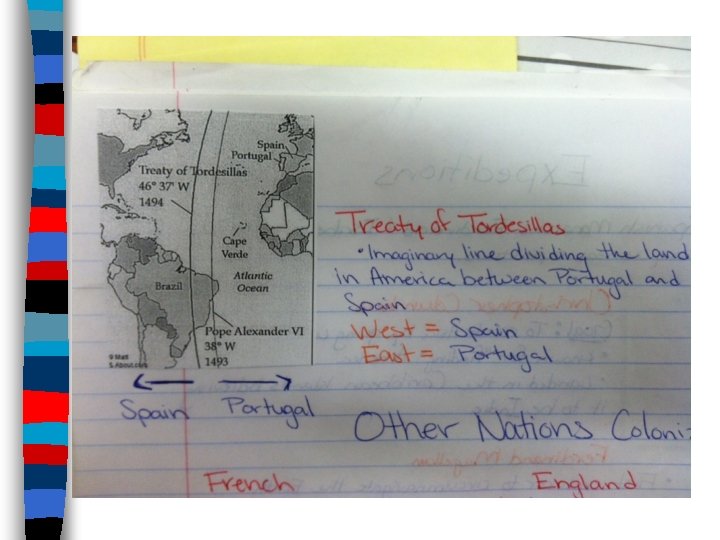 Expeditions
Spain
Portugal
Treaty of Tordesillas
46° 37' W
1494
Cape
Verde
Atlantic
Ocean
Brazil
Pope Alexander VI
38° W
1493
Treaty of Tordesillas
• Imaginary line dividing the land
in America between Portugal and
Spain
West = Spain
East = Portugal
Spain
Portugal
Other Nations Coloni
French
England